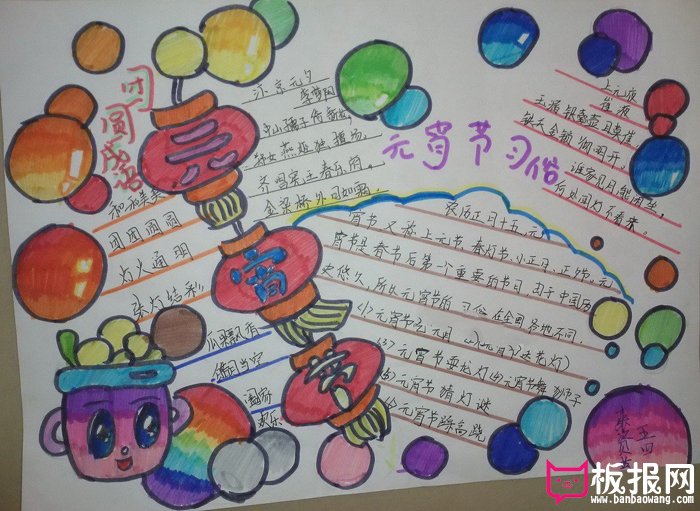 团圆成语
和和美美
团团圆圆
灯火通明
张灯结彩
瓜果飘香
阖家
欢乐
元
宵
节
汴京元夕
李梦阳
中山孺子倚新妆
郑女燕姬独擅场
齐唱宪王春乐府
金梁桥外月如霜
元宵节习俗
上元夜
崔液
玉漏铜壶且莫催
铁关金锁彻明开
谁家见月能闲坐
何处闻灯不看来。
农历正月十五,元
宵节又称上元节、春灯节、小正月、正夕节。元
宵节是春节后第一个重要的节日,由于中国历
史悠久,所以元宵节的习俗在全国各地不同。
(1)元宵节吃元宵
(3)元宵节耍龙灯 (4)元宵节舞狮子
(5)元宵节猜灯谜
(6)元宵节踩高跷
五四
板报网
www.banbaowang.com